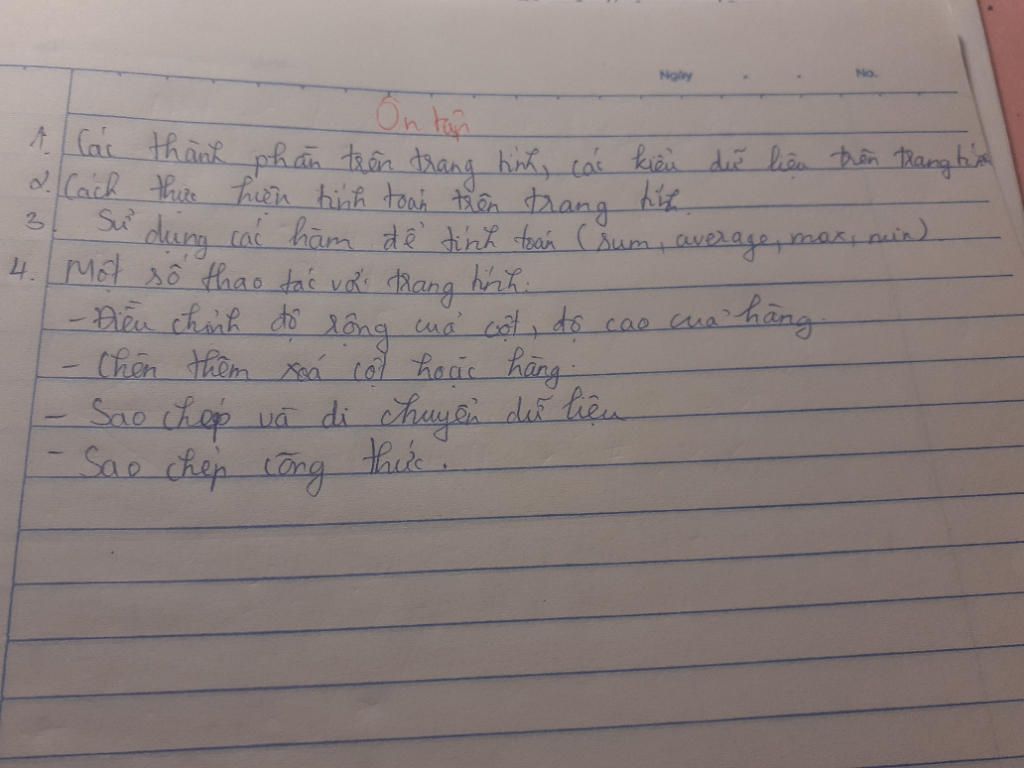 Ngày No.
Ôn tập
1. Các thành phần trên trang tính, các kiểu dữ liệu trên trang tính
2. Cách thực hiện tính toán trên trang tính.
3 Sử dụng các hàm để tính toán (sum, average, max, min)
4. Một số thao tác với trang tính:
- Điều chỉnh độ rộng của cột, độ cao của hàng.
- Chèn thêm xoá cột hoặc hàng.
- Sao chép và di chuyển dữ liệu
- Sao chép công thức.